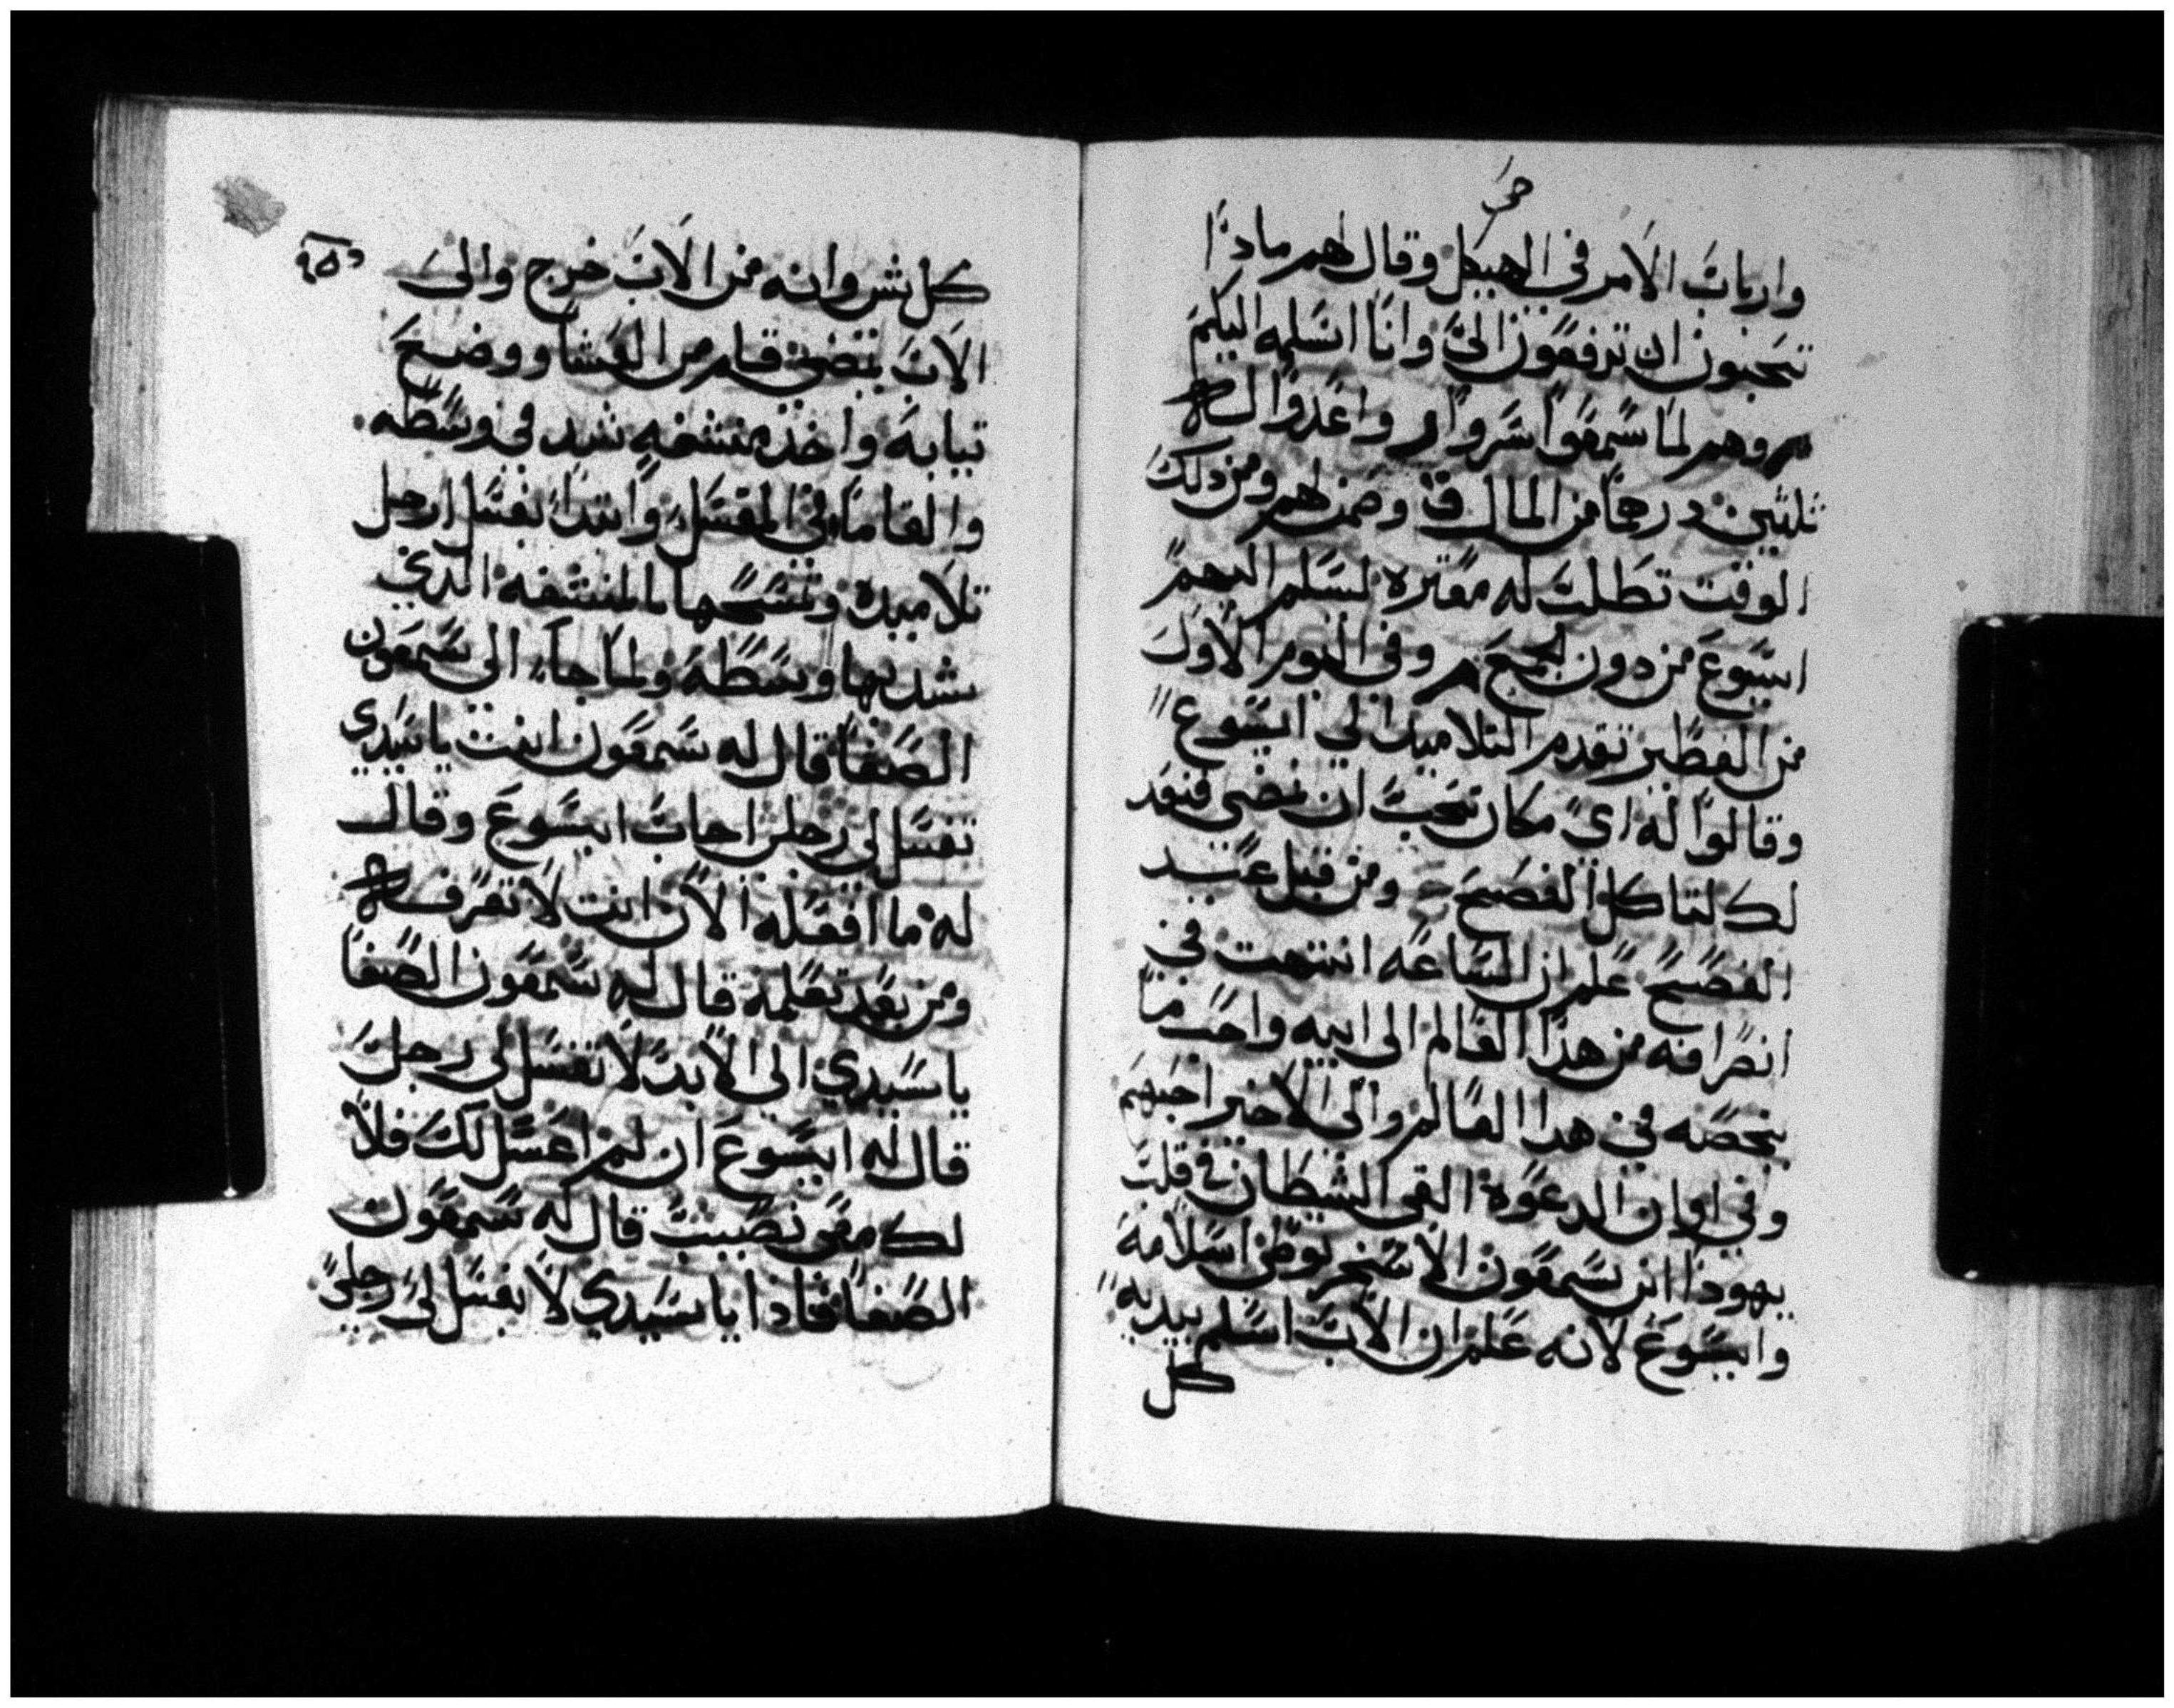 وارباب الامر في الهيكل وقال لهم ماذا
تحبون ان ترفعون الي وانا اسلمه اليكم
وهم لما سمعوا سروا واعدوا له
ثلثين درهما من المال وضمن لهم ومن ذلك
الوقت تطلب له مفتره ليسلم اليهم
ايسوع من دون الجمع وفي اليوم الاول
من الفطير تقدم التلاميد الي ايسوع
وقالوا له اي مكان تحب ان نمضي فنعد
لك لتاكل الفصح ومن قبل عيد
الفصح علم ان الساعه انتهت في
انصرافه من هذا العالم الى ابيه واحب من
يخصه في هدا العالم والى الاخير احبهم
وفي اوان الدعوة القى الشيطان في قلب
يهوذا ابن سمعون الاسخريوطى اسلامه
وايسوع لانه علم ان الاب اسلم بيديه
كل
كل شي وانه من الاب خرج والى
الاب يمضي قام من العشا ووضع
تيابه واخذ منشفه شد في وسطه
والقا ما في المغسل وابتدا يغسل ارجل
تلاميده وتنشحها بالمنشفه الذي
شد بها وسطه ولما جاء الى سمعون
الصفا قال له سمعون انت يا سيدي
تغسل لي رجلي اجاب ايسوع وقال
له ما افعله الان انت لا تعرف
ومن بعد تعلمه قال له سمعون الصفا
يا سيدي الى الابد لا تغسل لي رجل
قال له ايسوع ان لم اغسل لك فلا
لك معي نصيب قال له سمعون
الصفا فاذا يا سيدي لا تغسل لي رجلي